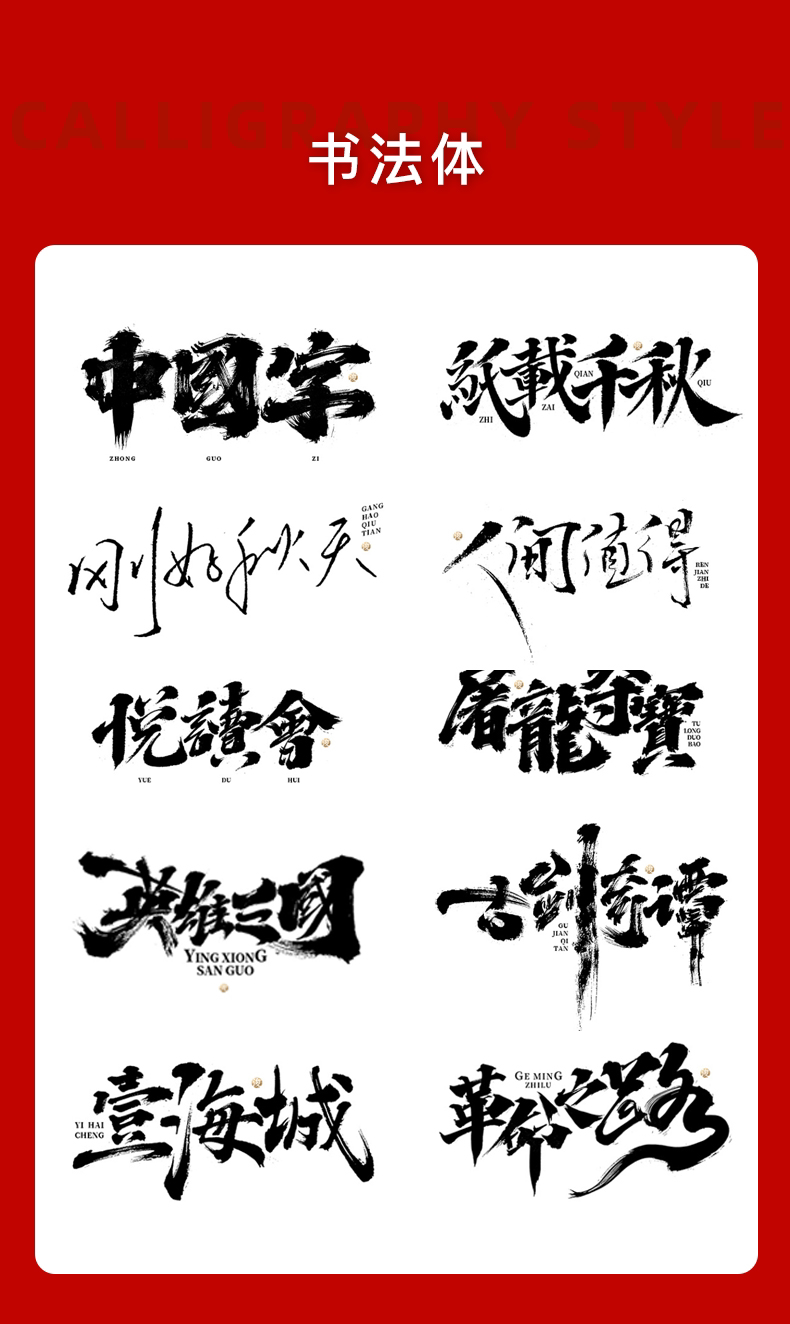 CALLIGRAPHY STYLE
书法体
中國字
ZHONG GUO ZI
紙載千秋
ZHI ZAI QIAN QIU
刚好秋天
GANG
HAO
QIU
TIAN
人间值得
REN
JIAN
ZHI
DE
悦讀會
YUE DU HUI
屠龍奪寶
TU
LONG
DUO
BAO
英雄三國
YING XIONG
SAN GUO
古剑奇谭
GU
JIAN
QI
TAN
壹海城
YI HAI
CHENG
革命之路
GE MING
ZHILU